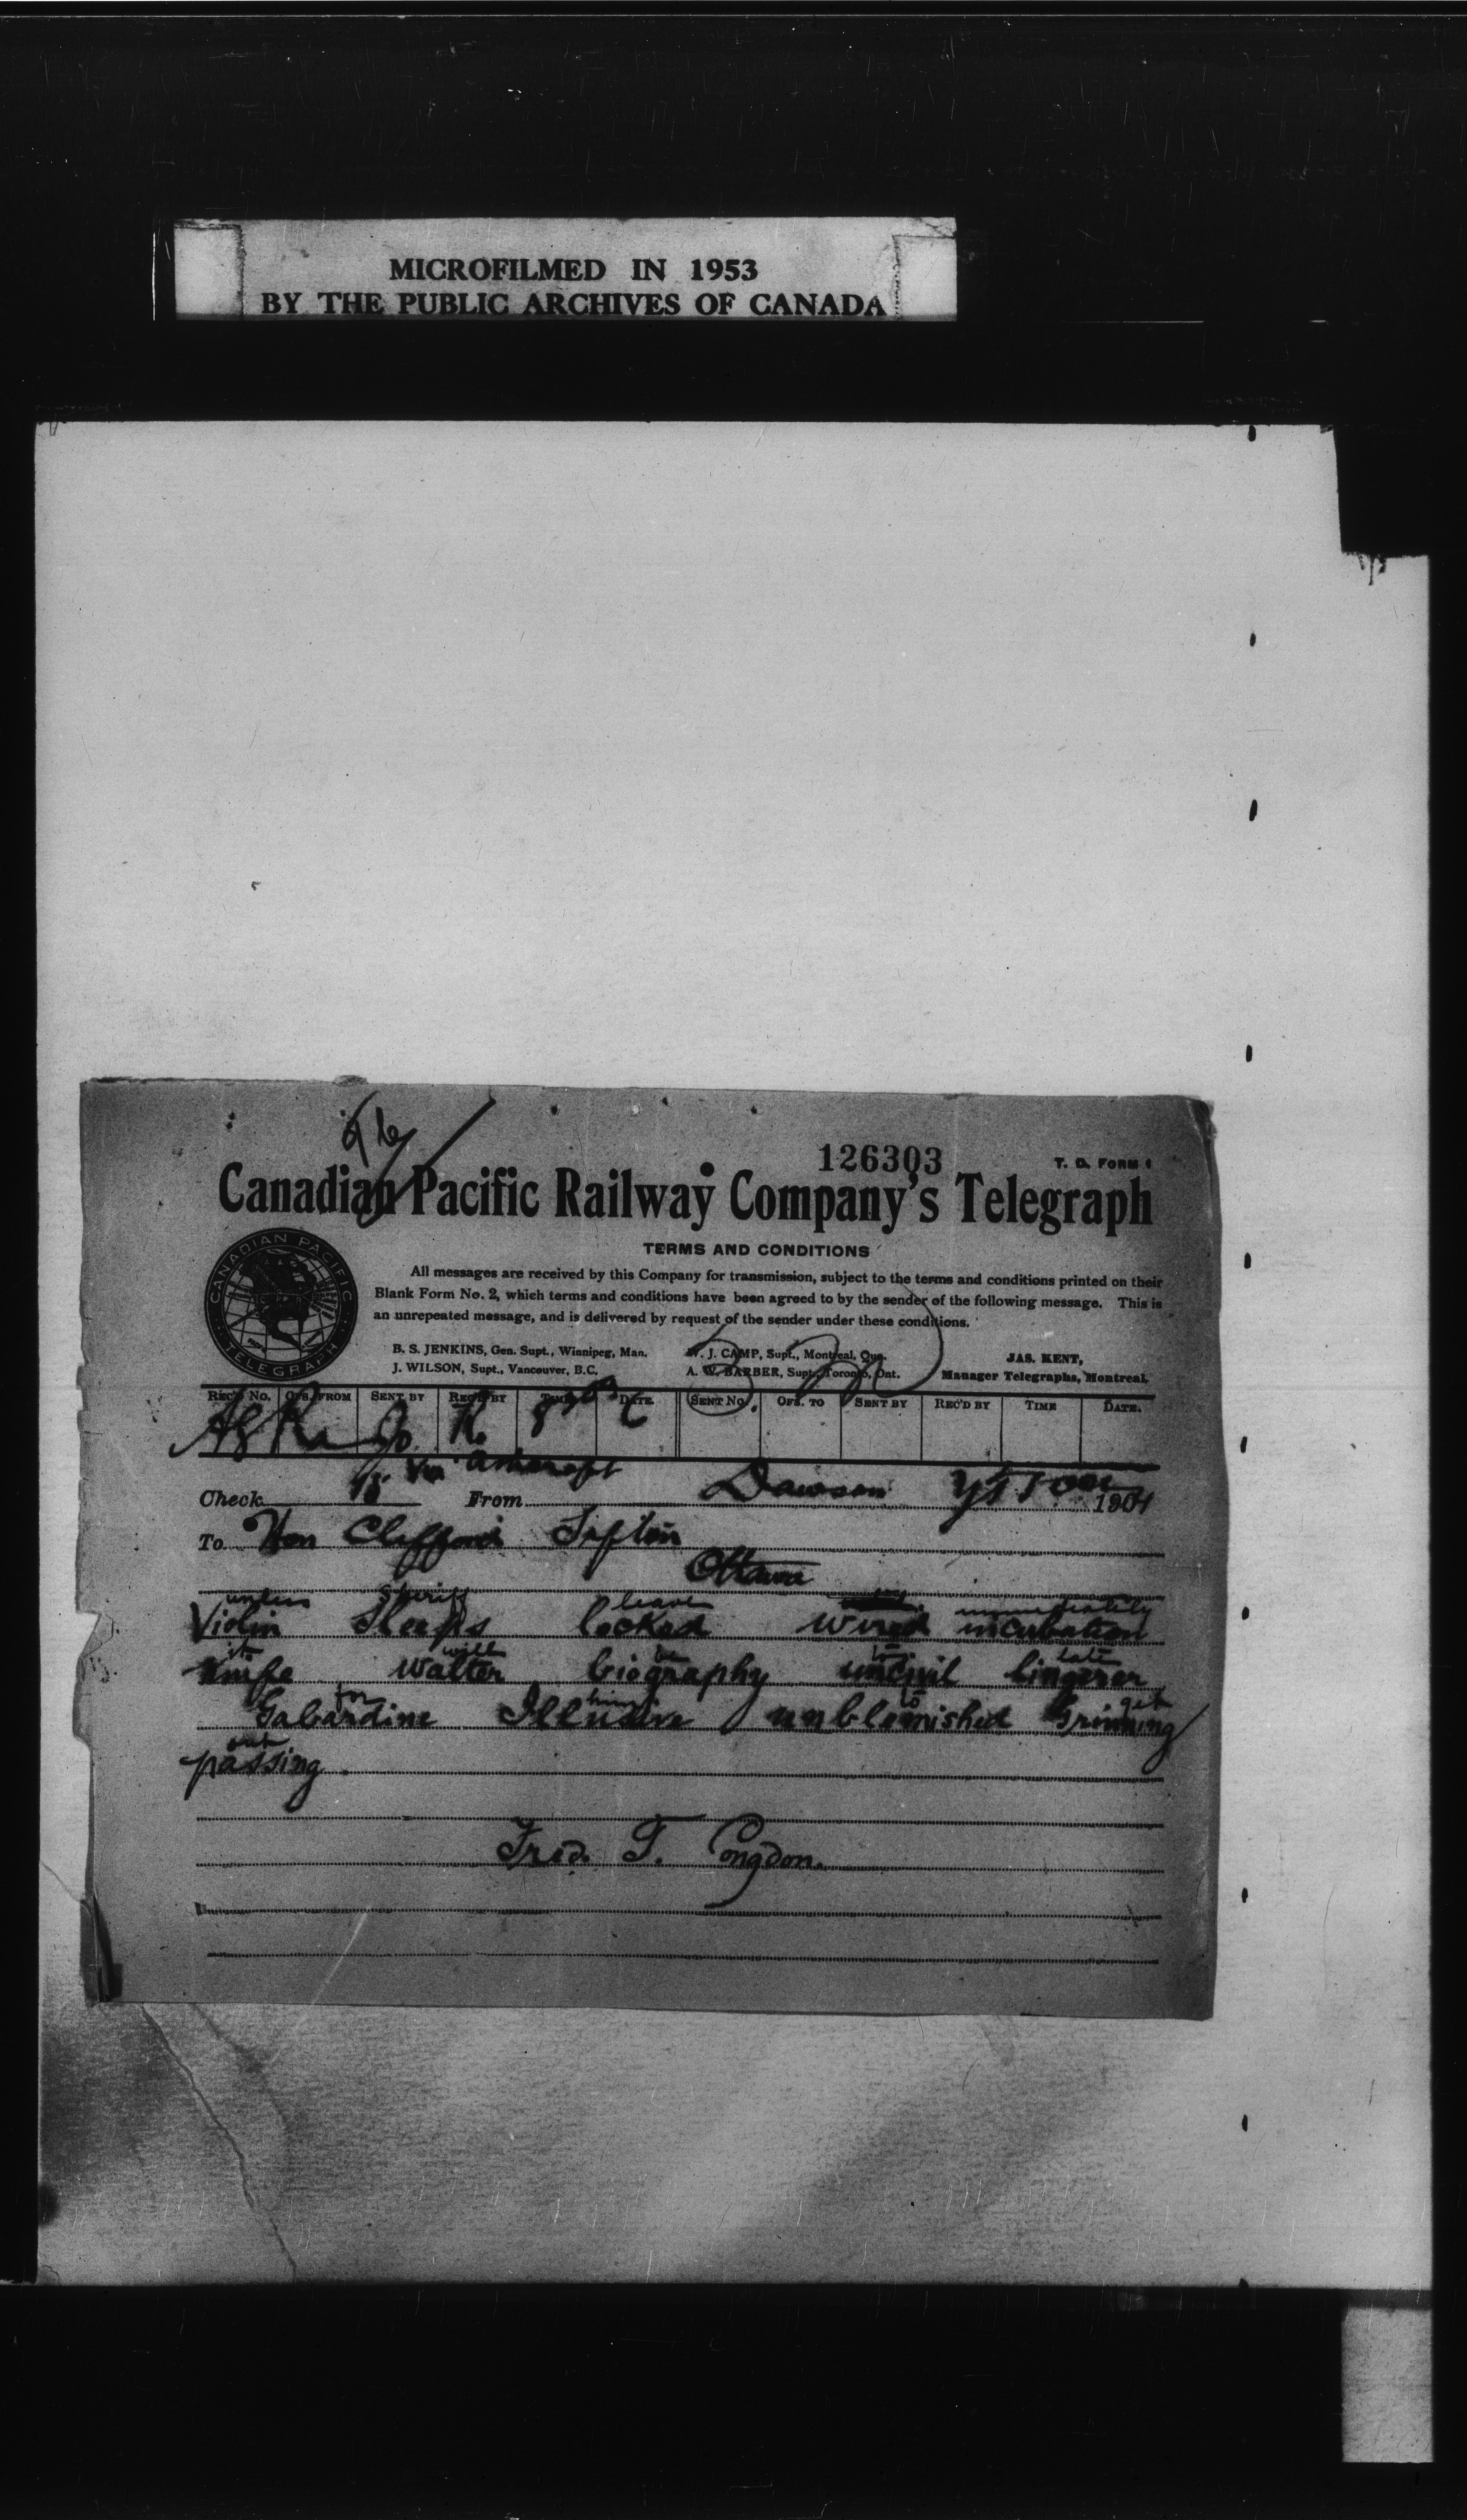 MICROFILMED IN 1953
BY THE PUBLIC ARCHIVES OF CANADA
126303
T. D. FORM
Canadian Pacific Railway Company's Telegraph
TERMS AND CONDITIONS
All messages are received by this Company for transmission, subject to the terms and conditions printed on their
Blank Form No. 2, which terms and conditions have been agreed to by the sender of the following message. This is
an unrepeated message, and is delivered by request of the sender under these conditions.
CANADIAN PACIFIC
TELEGRAPH
B. S. JENKINS, Gen. Supt., Winnipeg, Man.
J. WILSON, Supt., Vancouver, B.C.
W. J. CAMP, Supt., Montreal, Que.
A. W. BARBER, Supt., Toronto, Ont.
JAS. KENT,
Manager Telegraphs, Montreal.
REC'D No. OFS. FROM SENT BY REC'D BY TIME DATE SENT No. OFS. TO SENT BY REC'D BY TIME DATE.
Via Ashcroft
Check From Dawson YT 1904
To Hon Clifford Sifton
Ottawa
unless sheriff leave immediately
Violin Sleeps locked wired incubation
it will be too late
Knife Walter biography uncivil lingerer
for him to get
Gabardine Illusive unblemished Grinning
out
passing.
Fred. T. Congdon.